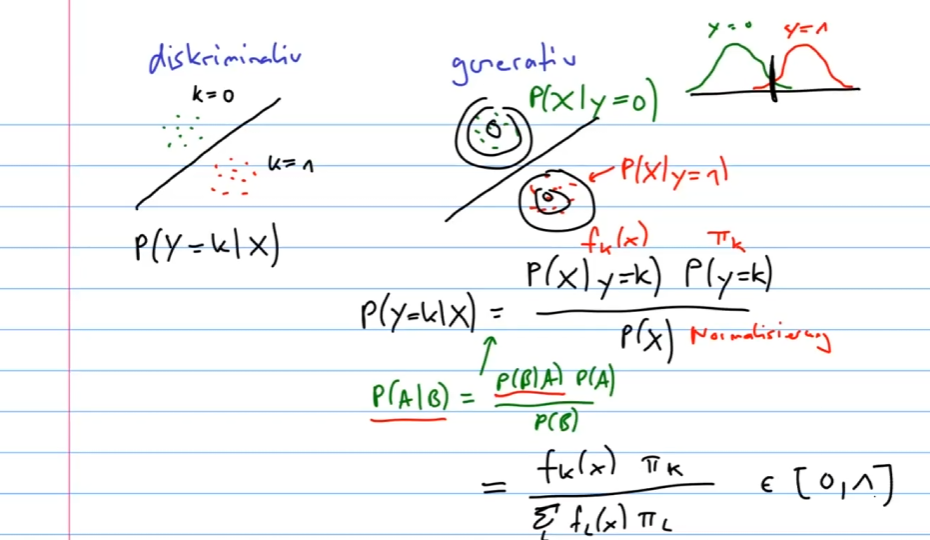 diskriminativ
k=0
k=1
P(Y=k|X)
generativ
P(X|y=0)
P(X|y=1)
y=0
y=1
f_k(x) π_k
P(Y=k|X) = P(X|y=k) P(y=k) / P(X)
Normalisierung
P(A|B) = P(B|A) P(A) / P(B)
= f_k(x) π_k / Σ_L f_L(x) π_L ∈ [0,1]